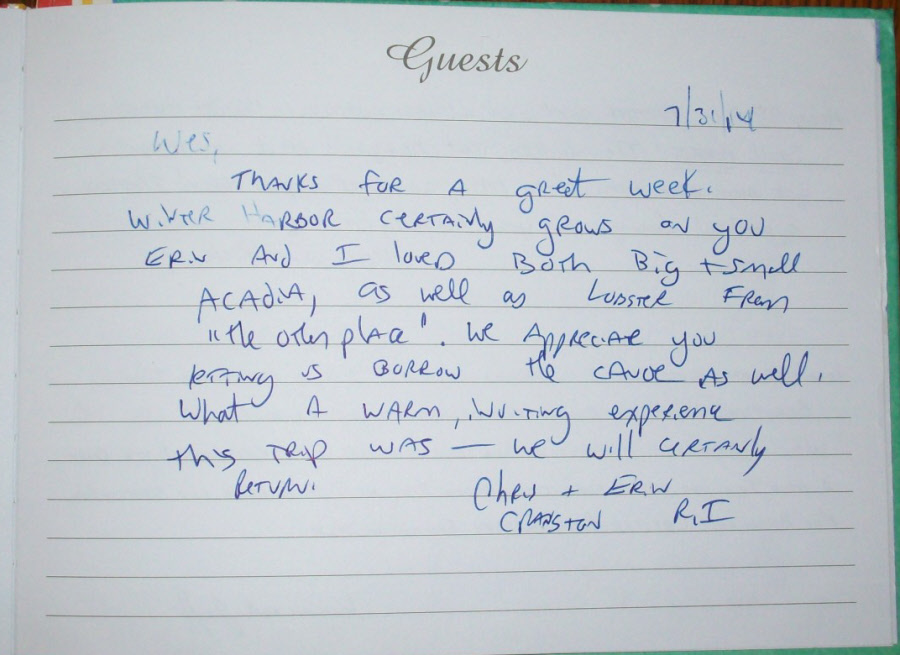 Guests
7/31/14
Wes,
THANKS FOR A great week.
WINTER HARBOR CERTAINLY grows on you
ERIN And I loved Both Big + small
ACADIA, as well as LOBSTER FROM
"the other place". We APPRECIATE you
letting us BORROW the CANOE AS well.
What A WARM, INVITING experience
this TRIP WAS — we will CERTAINLY
RETURN.
Chris + ERIN
CRANSTON R.I